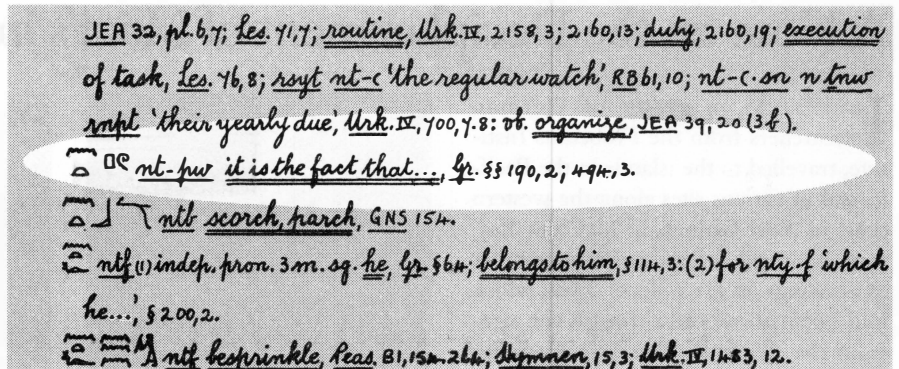 JEA 32, pl. 6, 7; Les. 71, 7; routine, Urk. IV, 2158, 3; 2160, 13; duty, 2160, 19; execution
of task, Les. 76, 8; rsyt nt-c 'the regular watch', RB 61, 10; nt-c·sn n ṯnw
rnpt 'their yearly due', Urk. IV, 700, 7.8: vb. organize, JEA 39, 20 (3f).
nt-pw it is the fact that..., Gr. §§ 190, 2; 494, 3.
ntb scorch, parch, GNS 154.
ntf (1) indep. pron. 3 m. sg. he, Gr. § 64; belongs to him, § 114, 3: (2) for nty·f 'which
he..., § 200, 2.
ntf besprinkle, Peas. B1, 154. 264; Hymnen, 15, 3; Urk. IV, 1483, 12.